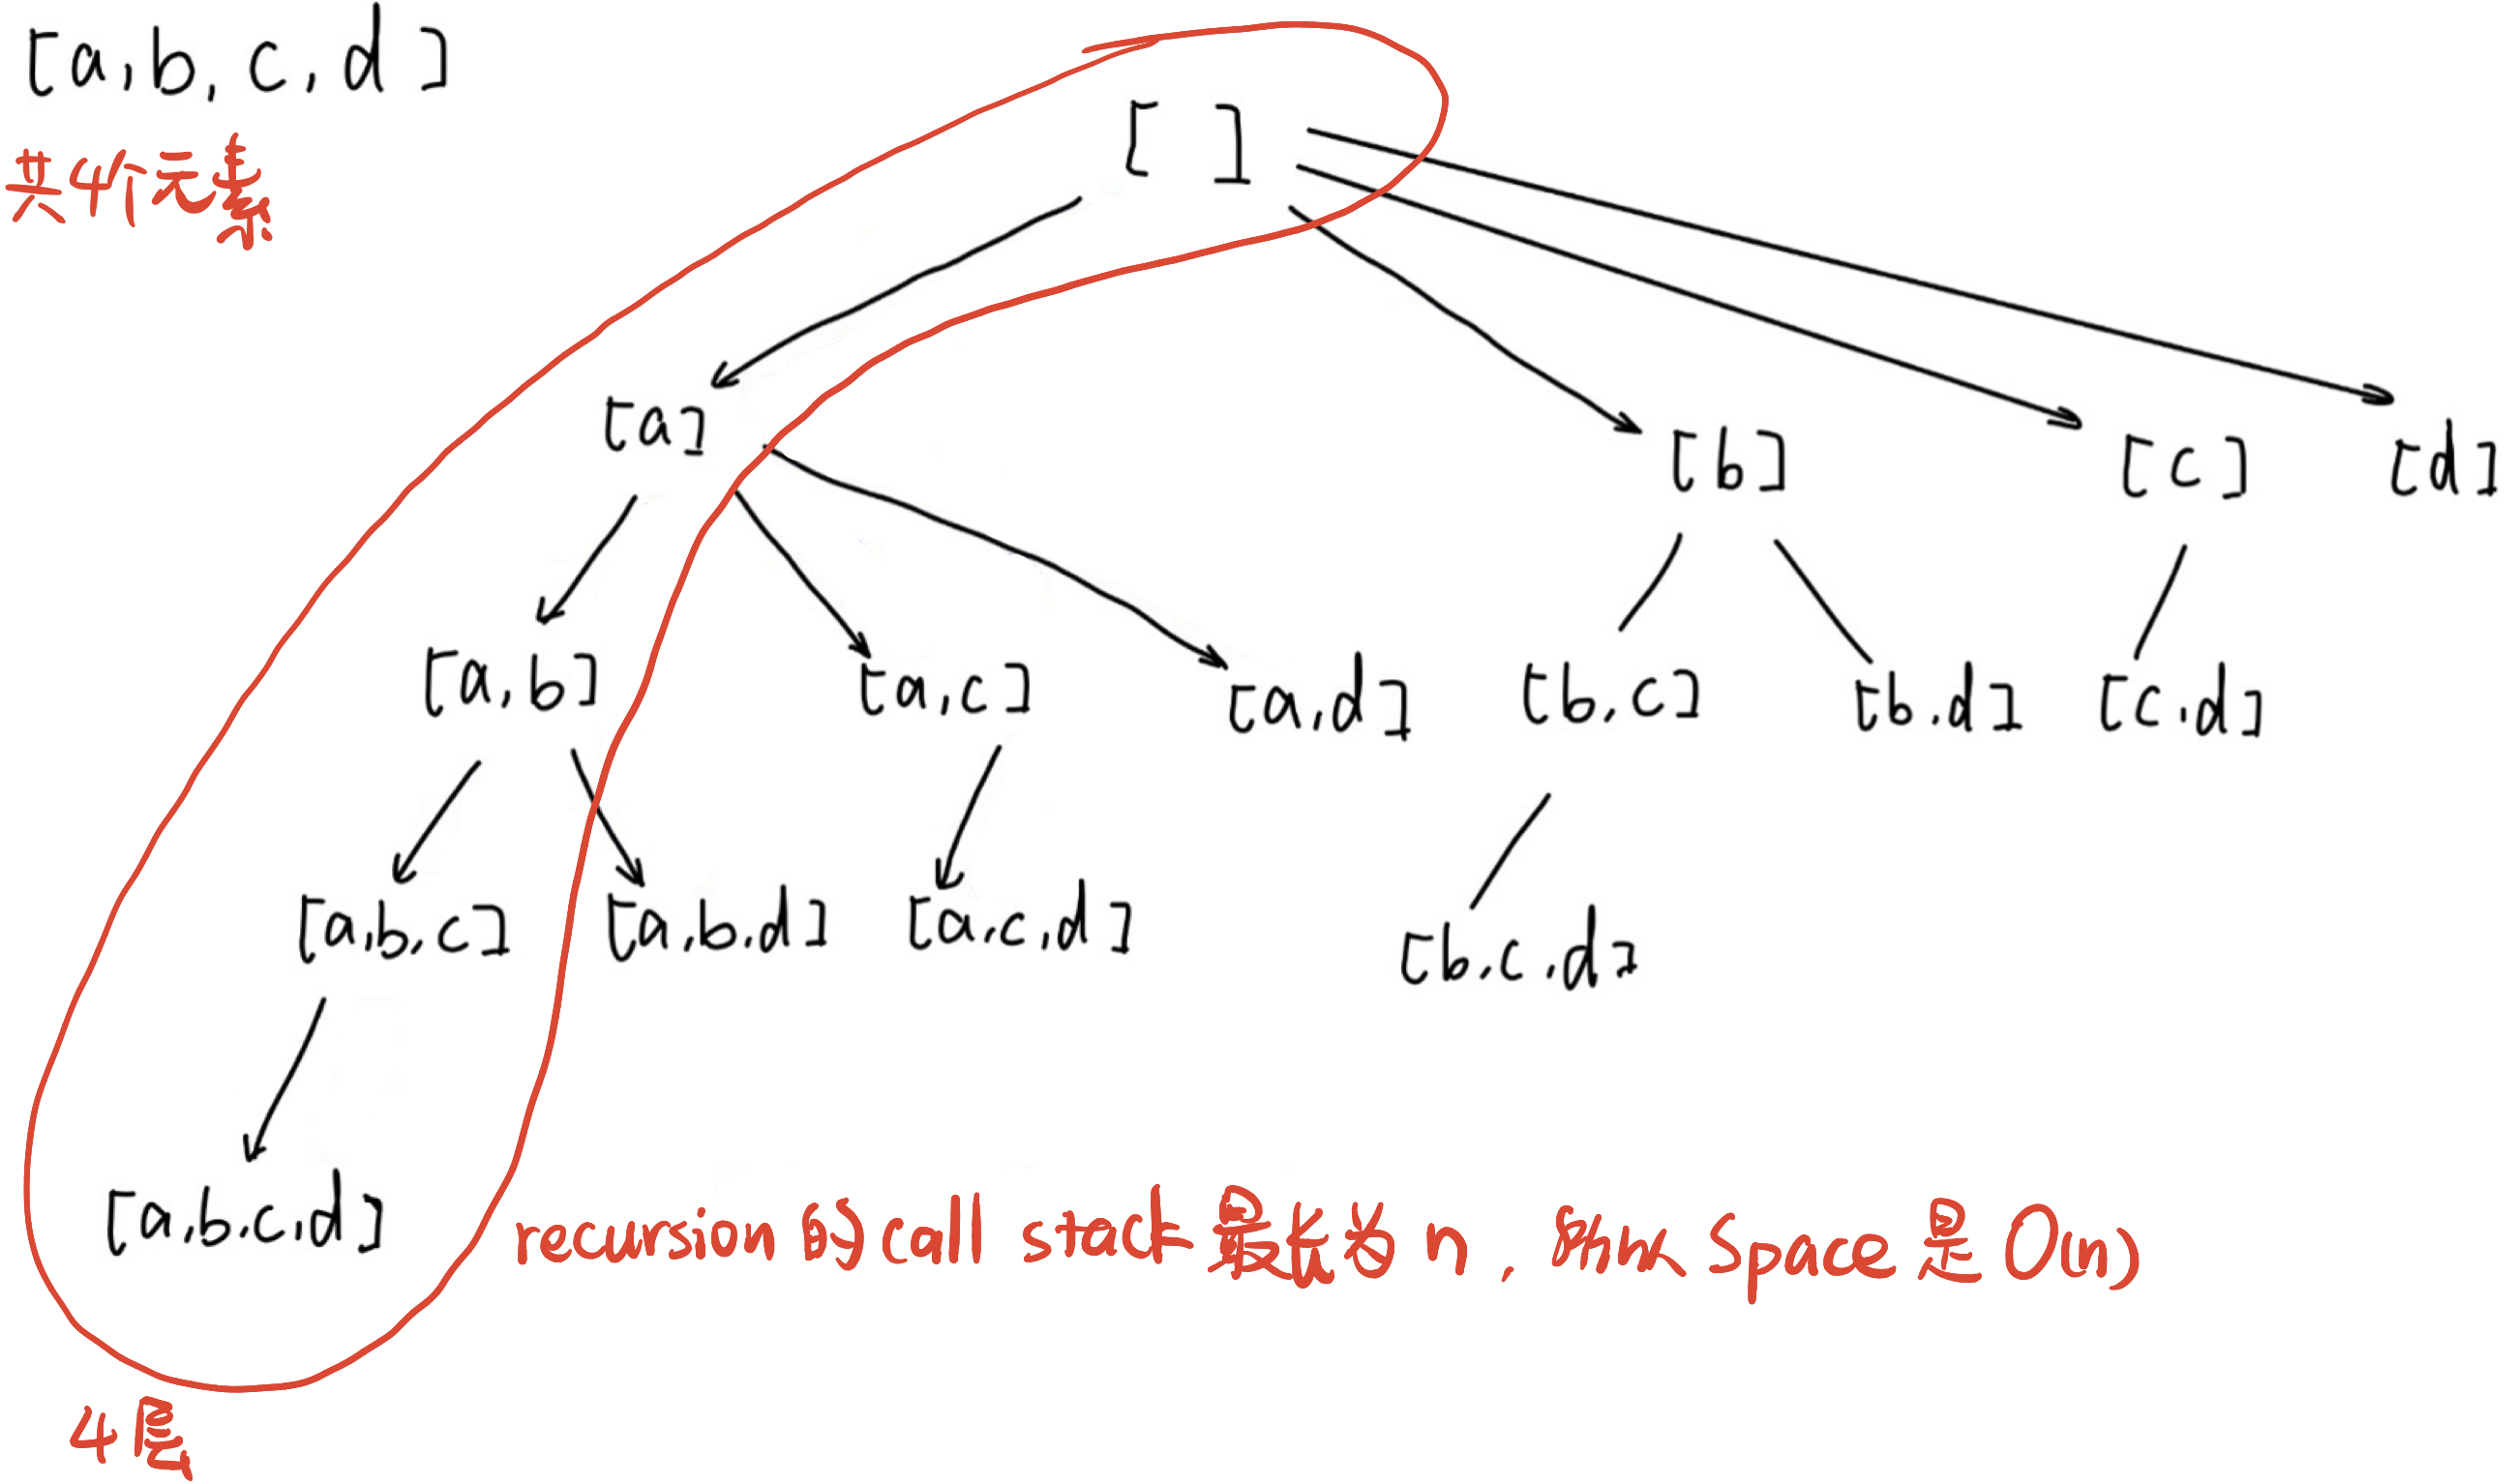 [a,b,c,d]
共4个元素
[ ]
[a] [b] [c] [d]
[a,b] [a,c] [a,d] [b,c] [b,d] [c,d]
[a,b,c] [a,b,d] [a,c,d] [b,c,d]
[a,b,c,d]
recursion 的 call stack 最长为 n, 所以 space 是 O(n)
4层